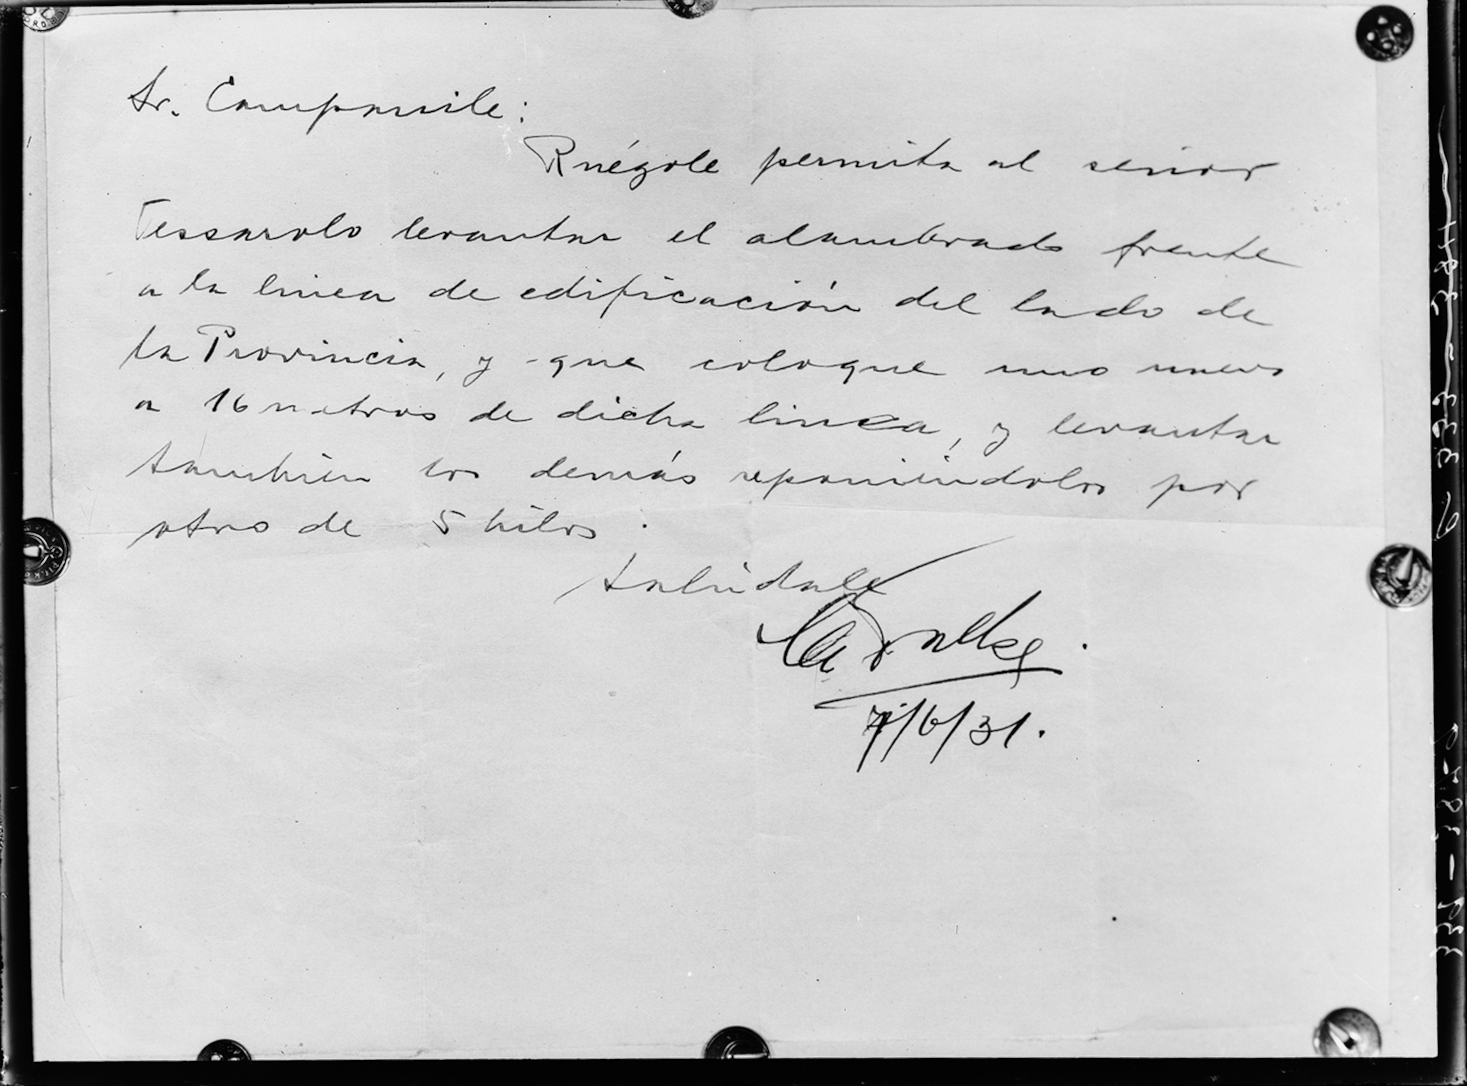 Sr. Campanile:
Ruégole permita al señor
Tessarolo levantar el alambrado frente
a la linea de edificación del lado de
la Provincia, y que coloque uno nuevo
a 16 metros de dicha linea, y levantar
también los demás reponiéndolos por
otro de 5 hilos.
Salúdale
7/6/31.